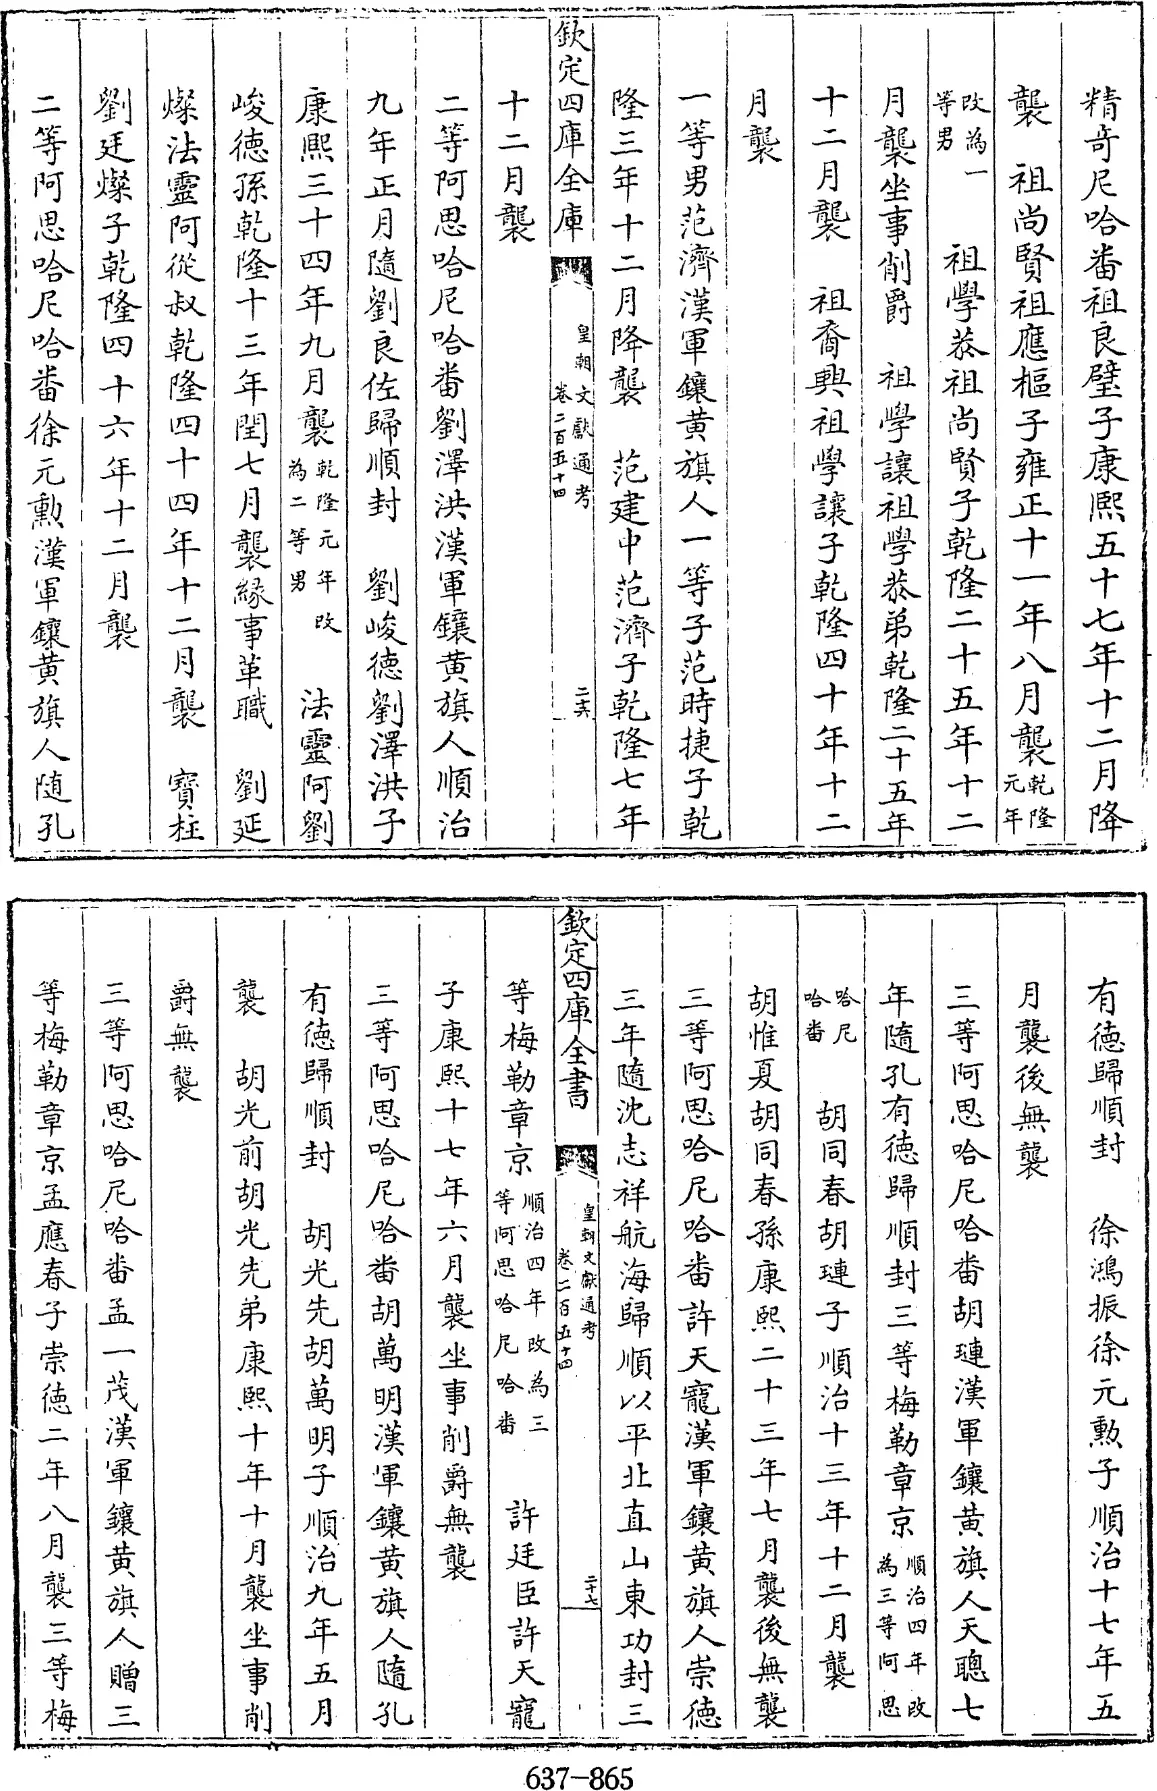 精奇尼哈番祖良璧子康熙五十七年十二月降
襲　祖尚賢祖應樞子雍正十一年八月襲乾隆元年
改為一等男　祖學恭祖尚賢子乾隆二十五年十二
月襲坐事削爵　祖學讓祖學恭弟乾隆二十五年
十二月襲　祖裔興祖學讓子乾隆四十年十二
月襲
一等男范濟漢軍鑲黄旗人一等子范時捷子乾
隆三年十二月降襲　范建中范濟子乾隆七年
欽定四庫全庫　皇朝文獻通考卷二百五十四　二十六
十二月襲
二等阿思哈尼哈番劉澤洪漢軍鑲黄旗人順治
九年正月隨劉良佐歸順封　劉峻德劉澤洪子
康熙三十四年九月襲乾隆元年改為二等男　法靈阿劉
峻德孫乾隆十三年閏七月襲緣事革職　劉延
燦法靈阿從叔乾隆四十四年十二月襲　寶柱
劉廷燦子乾隆四十六年十二月襲
二等阿思哈尼哈番徐元勲漢軍鑲黄旗人随孔
有德歸順封　徐鴻振徐元勲子順治十七年五
月襲後無襲
三等阿思哈尼哈番胡璉漢軍鑲黄旗人天聰七
年隨孔有德歸順封三等梅勒章京順治四年改為三等阿思
哈尼哈番　胡同春胡璉子順治十三年十二月襲
胡惟夏胡同春孫康熙二十三年七月襲後無襲
三等阿思哈尼哈番許天寵漢軍鑲黄旗人崇德
三年隨沈志祥航海歸順以平北直山東功封三
欽定四庫全書　皇朝文獻通考卷二百五十四　二十七
等梅勒章京順治四年改為三等阿思哈尼哈番　許廷臣許天寵
子康熙十七年六月襲坐事削爵無襲
三等阿思哈尼哈番胡萬明漢軍鑲黄旗人隨孔
有德歸順封　胡光先胡萬明子順治九年五月
襲　胡光前胡光先弟康熙十年十月襲坐事削
爵無襲
三等阿思哈尼哈番孟一茂漢軍鑲黄旗人贈三
等梅勒章京孟應春子崇德二年八月襲三等梅
637-865